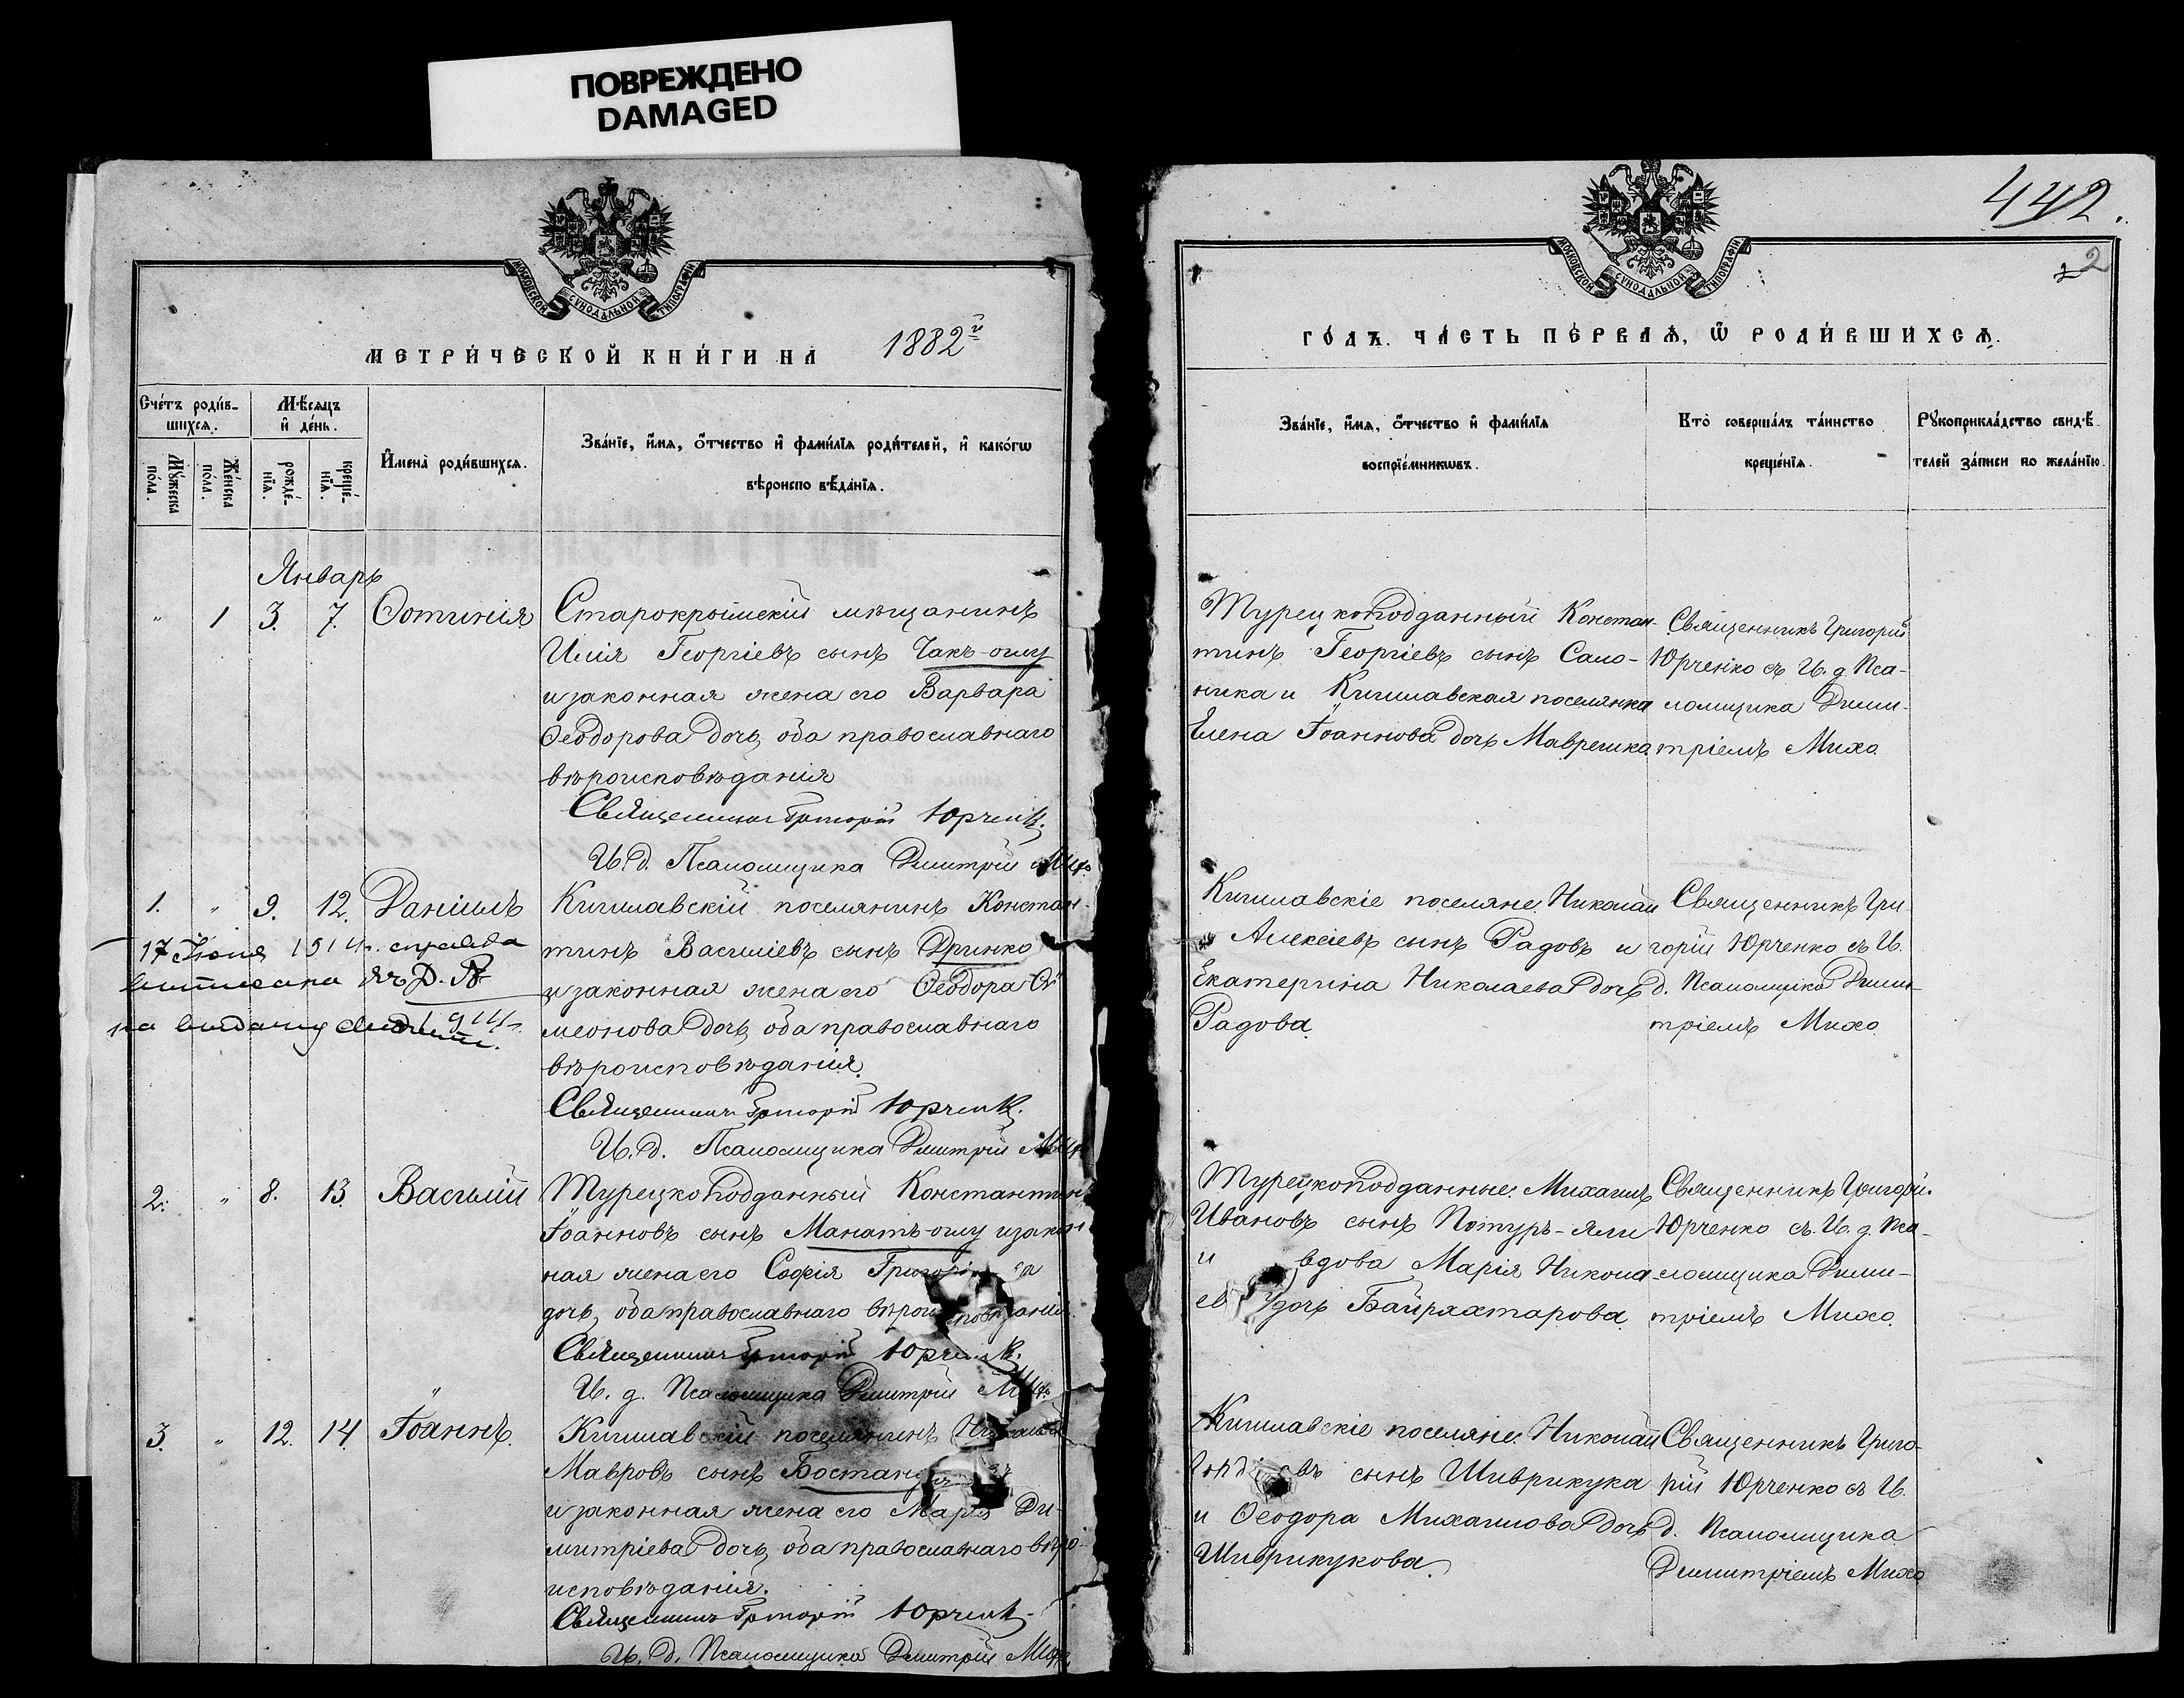 ПОВРЕЖДЕНО
DAMAGED
МОСКОВСКОЙ СѴНОДАЛЬНОЙ ТИПОГРАФІИ
МЕТРИ́ЧЕСКОЙ КНИ́ГИ НА 1882й
Сче́тъ роди́в-
шихся.
Мѣ́сяцъ
и҆ де́нь.
Мꙋ́жеска
по́ла.
Же́нска
по́ла.
рожде́-
нїѧ.
креще́-
нїѧ.
И҆мена̀ роди́вшихсѧ.
Зва́нїе, и҆́мѧ, ѻ҆́тчество и҆ фами́лїѧ роди́телей, и҆ како́гѡ
вѣроиспо вѣ́данїѧ.
Январь
" 1 3. 7. Фотинія
Старокрымскій мѣщанинъ
Илія Георгіевъ сынъ Чакъ-оглу
и законная жена его Варвара
Ѳеодорова дочь, оба православнаго
вѣроисповѣданія
Священникъ Григорій Юрченко.
И. д. Псаломщика Дмитрій Михо
1. " 9. 12. Даніилъ
Кишлавскій поселянинъ Констан-
тинъ Василіевъ сынъ Дринко
и законная жена его Ѳеодора Си
меонова дочь, оба православнаго
вѣроисповѣданія.
Священникъ Григорій Юрченко.
И. д. Псаломщика Дмитрій Михо
17 Іюня 1914г.
на выдачу
2. " 8. 13. Василій
Турецкоподданный Константинъ
Іоанновъ сынъ Манатъ-оглу и закон
ная жена его Софія
дочь, оба православнаго вѣроисповѣданія.
Священникъ Григорій Юрченко.
И. д. Псаломщика Дмитрій Михо
3. " 12. 14 Іоаннъ.
Кишлавскій поселянинъ Николай
Мавровъ сынъ
и законная жена его Марія Ди-
митріева дочь, оба православнаго вѣро-
исповѣданія.
Священникъ Григорій Юрченко
И. д. Псаломщика Дмитрій Михо
442.
2
МОСКОВСКОЙ СѴНОДАЛЬНОЙ ТИПОГРАФІИ
ГО́ДЪ. ЧА́СТЬ ПЕ́РВАѦ, Ѿ РОДИ́ВШИХСѦ.
Зва́нїе, и҆́мѧ, ѻ҆́тчество и҆ фами́лїѧ
воспрїе́мникѡвъ.
Кто̀ соверша́лъ та́инство
креще́нїѧ.
Рꙋкоприкла́дство свидѣ́-
телей за́писи по жела́нїю.
Турецкоподданный Констан-
тинъ Георгіевъ сынъ Сало-
ника и Кишлавская поселянка
Елена Іоаннова дочь Маврешка
Священникъ Григорій
Юрченко съ И. д. Пса-
ломщика Дими-
тріемъ Михо
Кишлавскіе поселяне: Николай
Алексіевъ сынъ Радовъ и
Екатерина Николаева дочь
Радова.
Священникъ Гри-
горій Юрченко съ И.
д. Псаломщика Дими-
тріемъ Михо.
Турецкоподданные: Михаилъ
Ивановъ сынъ Потуръ-яли
и вдова Марія Никола-
ев дочь Байрахтарова.
Священникъ Григорій
Юрченко съ. И. д. Пса-
ломщика Дими-
тріемъ Михо.
Кишлавскіе поселяне: Николай
въ сынъ Шиврикука
и Ѳеодора Михаилова дочь
Шиврикукова.
Священникъ Григо-
рій Юрченко съ И.
д. Псаломщика
Димитріемъ Михо